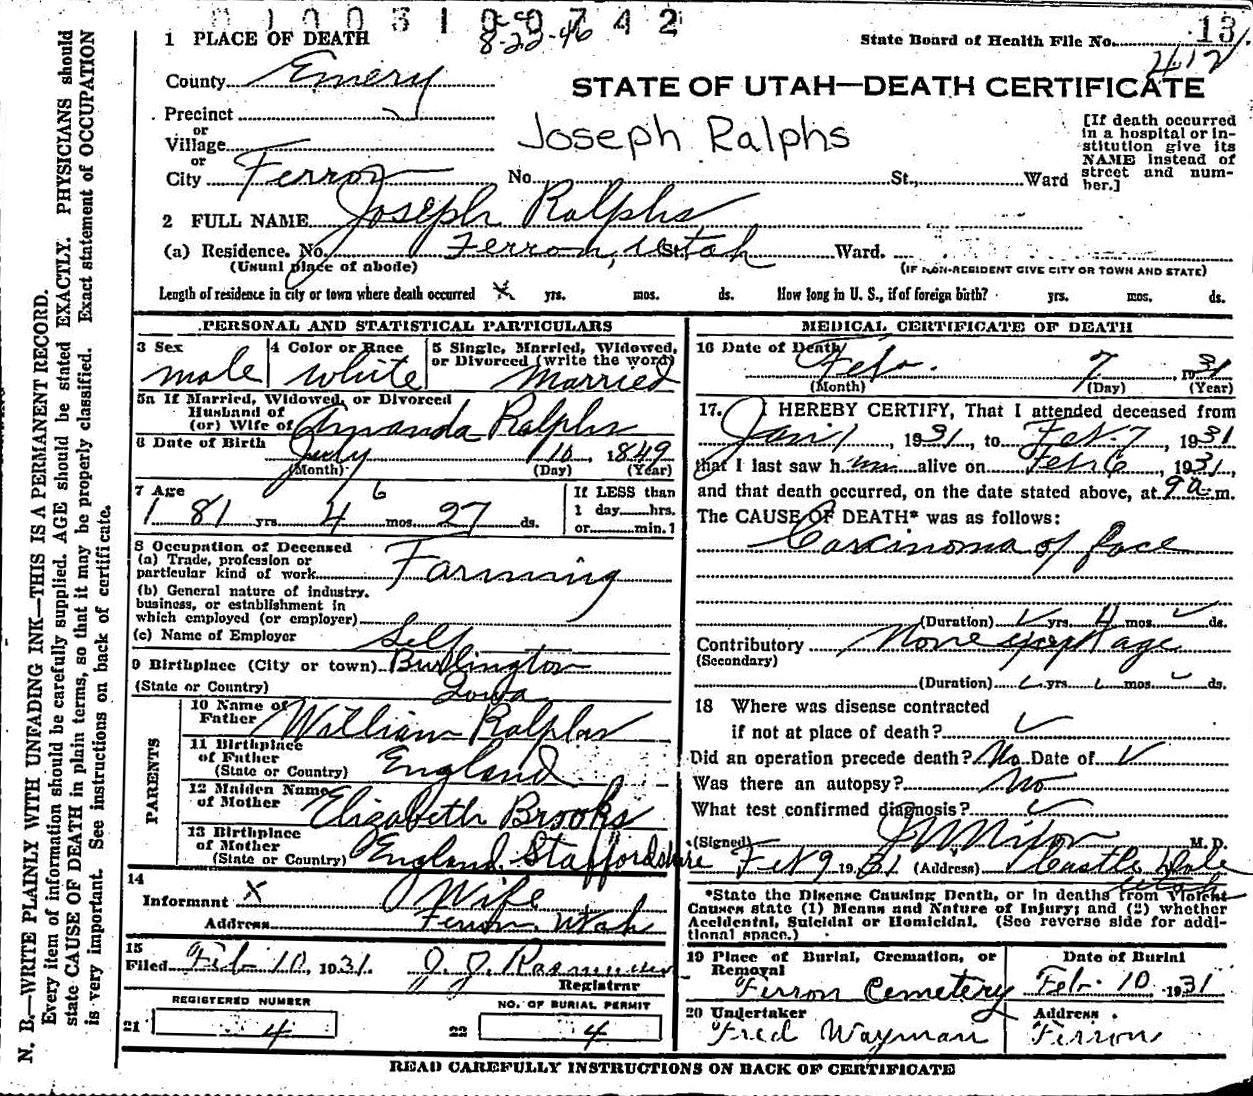 0 1 0 0 3 1 0 0 7 4 2
8-22-46
1 PLACE OF DEATH
State Board of Health File No. 13
412
County Emery
STATE OF UTAH—DEATH CERTIFICATE
Precinct
or
Village
or
City Ferron No. St., Ward
Joseph Ralphs
[If death occurred in a hospital or in-
stitution give its
NAME instead of
street and num-
ber.]
2 FULL NAME Joseph Ralphs
(a) Residence. No. Ferron, Utah St. Ward.
(Usual place of abode)
(IF NON-RESIDENT GIVE CITY OR TOWN AND STATE)
Length of residence in city or town where death occurred yrs. mos. ds. How long in U. S., if of foreign birth? yrs. mos. ds.
PERSONAL AND STATISTICAL PARTICULARS
3 Sex
male
4 Color or Race
White
5 Single, Married, Widowed,
or Divorced (write the word)
Married
5a If Married, Widowed, or Divorced
Husband of
(or) Wife of Amanda Ralphs
6 Date of Birth July 10, 1849
(Month) (Day) (Year)
7 Age
81 yrs. 4 mos. 27 ds.
6
If LESS than
1 day hrs.
or min.
8 Occupation of Deceased
(a) Trade, profession or
particular kind of work Farming
(b) General nature of industry,
business, or establishment in
which employed (or employer)
(c) Name of Employer Self
9 Birthplace (City or town) Burlington
(State or Country) Iowa
PARENTS
10 Name of
Father William Ralphs
11 Birthplace
of Father
(State or Country) England
12 Maiden Name
of Mother Elizabeth Brooks
13 Birthplace
of Mother
(State or Country) England. Staffordshire
14
Informant X Wife
Address Ferron, Utah
15
Filed Feb 10, 1931. J. J. Rasmussen
Registrar
REGISTERED NUMBER
21 4
NO. OF BURIAL PERMIT
22 4
MEDICAL CERTIFICATE OF DEATH
16 Date of Death
Feb. 7, 1931
(Month) (Day) (Year)
17. I HEREBY CERTIFY, That I attended deceased from
Jan 1, 1931, to Feb. 7, 1931
that I last saw him alive on Feb 6, 1931,
and that death occurred, on the date stated above, at 9 a m.
The CAUSE OF DEATH* was as follows:
Carcinoma of face
(Duration) yrs. 4 mos. ds.
Contributory None except age
(Secondary)
(Duration) yrs. mos. ds.
18 Where was disease contracted
if not at place of death?
Did an operation precede death? No Date of
Was there an autopsy? No
What test confirmed diagnosis?
(Signed) M. D.
Feb 9 1931 (Address) Castle Dale
Utah
*State the Disease Causing Death, or in deaths from Violent
Causes state (1) Means and Nature of Injury; and (2) whether
Accidental, Suicidal or Homicidal. (See reverse side for addi-
tional space.)
19 Place of Burial, Cremation, or
Removal
Ferron Cemetery
Date of Burial
Feb. 10 1931
20 Undertaker
Fred Wayman
Address
Ferron
READ CAREFULLY INSTRUCTIONS ON BACK OF CERTIFICATE
N. B.—WRITE PLAINLY WITH UNFADING INK—THIS IS A PERMANENT RECORD.
Every item of information should be carefully supplied. AGE should be stated EXACTLY. PHYSICIANS should
state CAUSE OF DEATH in plain terms, so that it may be properly classified. Exact statement of OCCUPATION
is very important. See instructions on back of certificate.